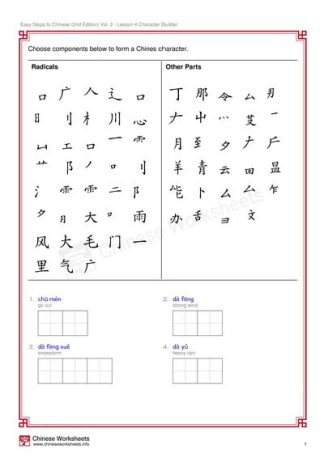 Easy Steps to Chinese (2nd Edition) Vol. 2 - Lesson 4 Character Builder
Choose components below to form a Chines character.
Radicals Other Parts
口 广 人 辶 口 丁 那 令 厶
刂 川 心 屮 一
凵 工 口 一 ⻗ 月 至 夕
艹 阝 丿 刂 羊 青 云 田 显
氵 ⻗ ⻗ 二 阝 能 卜 厶 厶 乍
夕 月 大 雨 办 舌 文
风 大 毛 门 一
里 气 广
1. chū mén 2. dà fēng
go out strong wind
3. dà fēng xuě 4. dà yǔ
snowstorm heavy rain
Chinese Worksheets
Chinese Worksheets
www.chineseworksheets.info
1